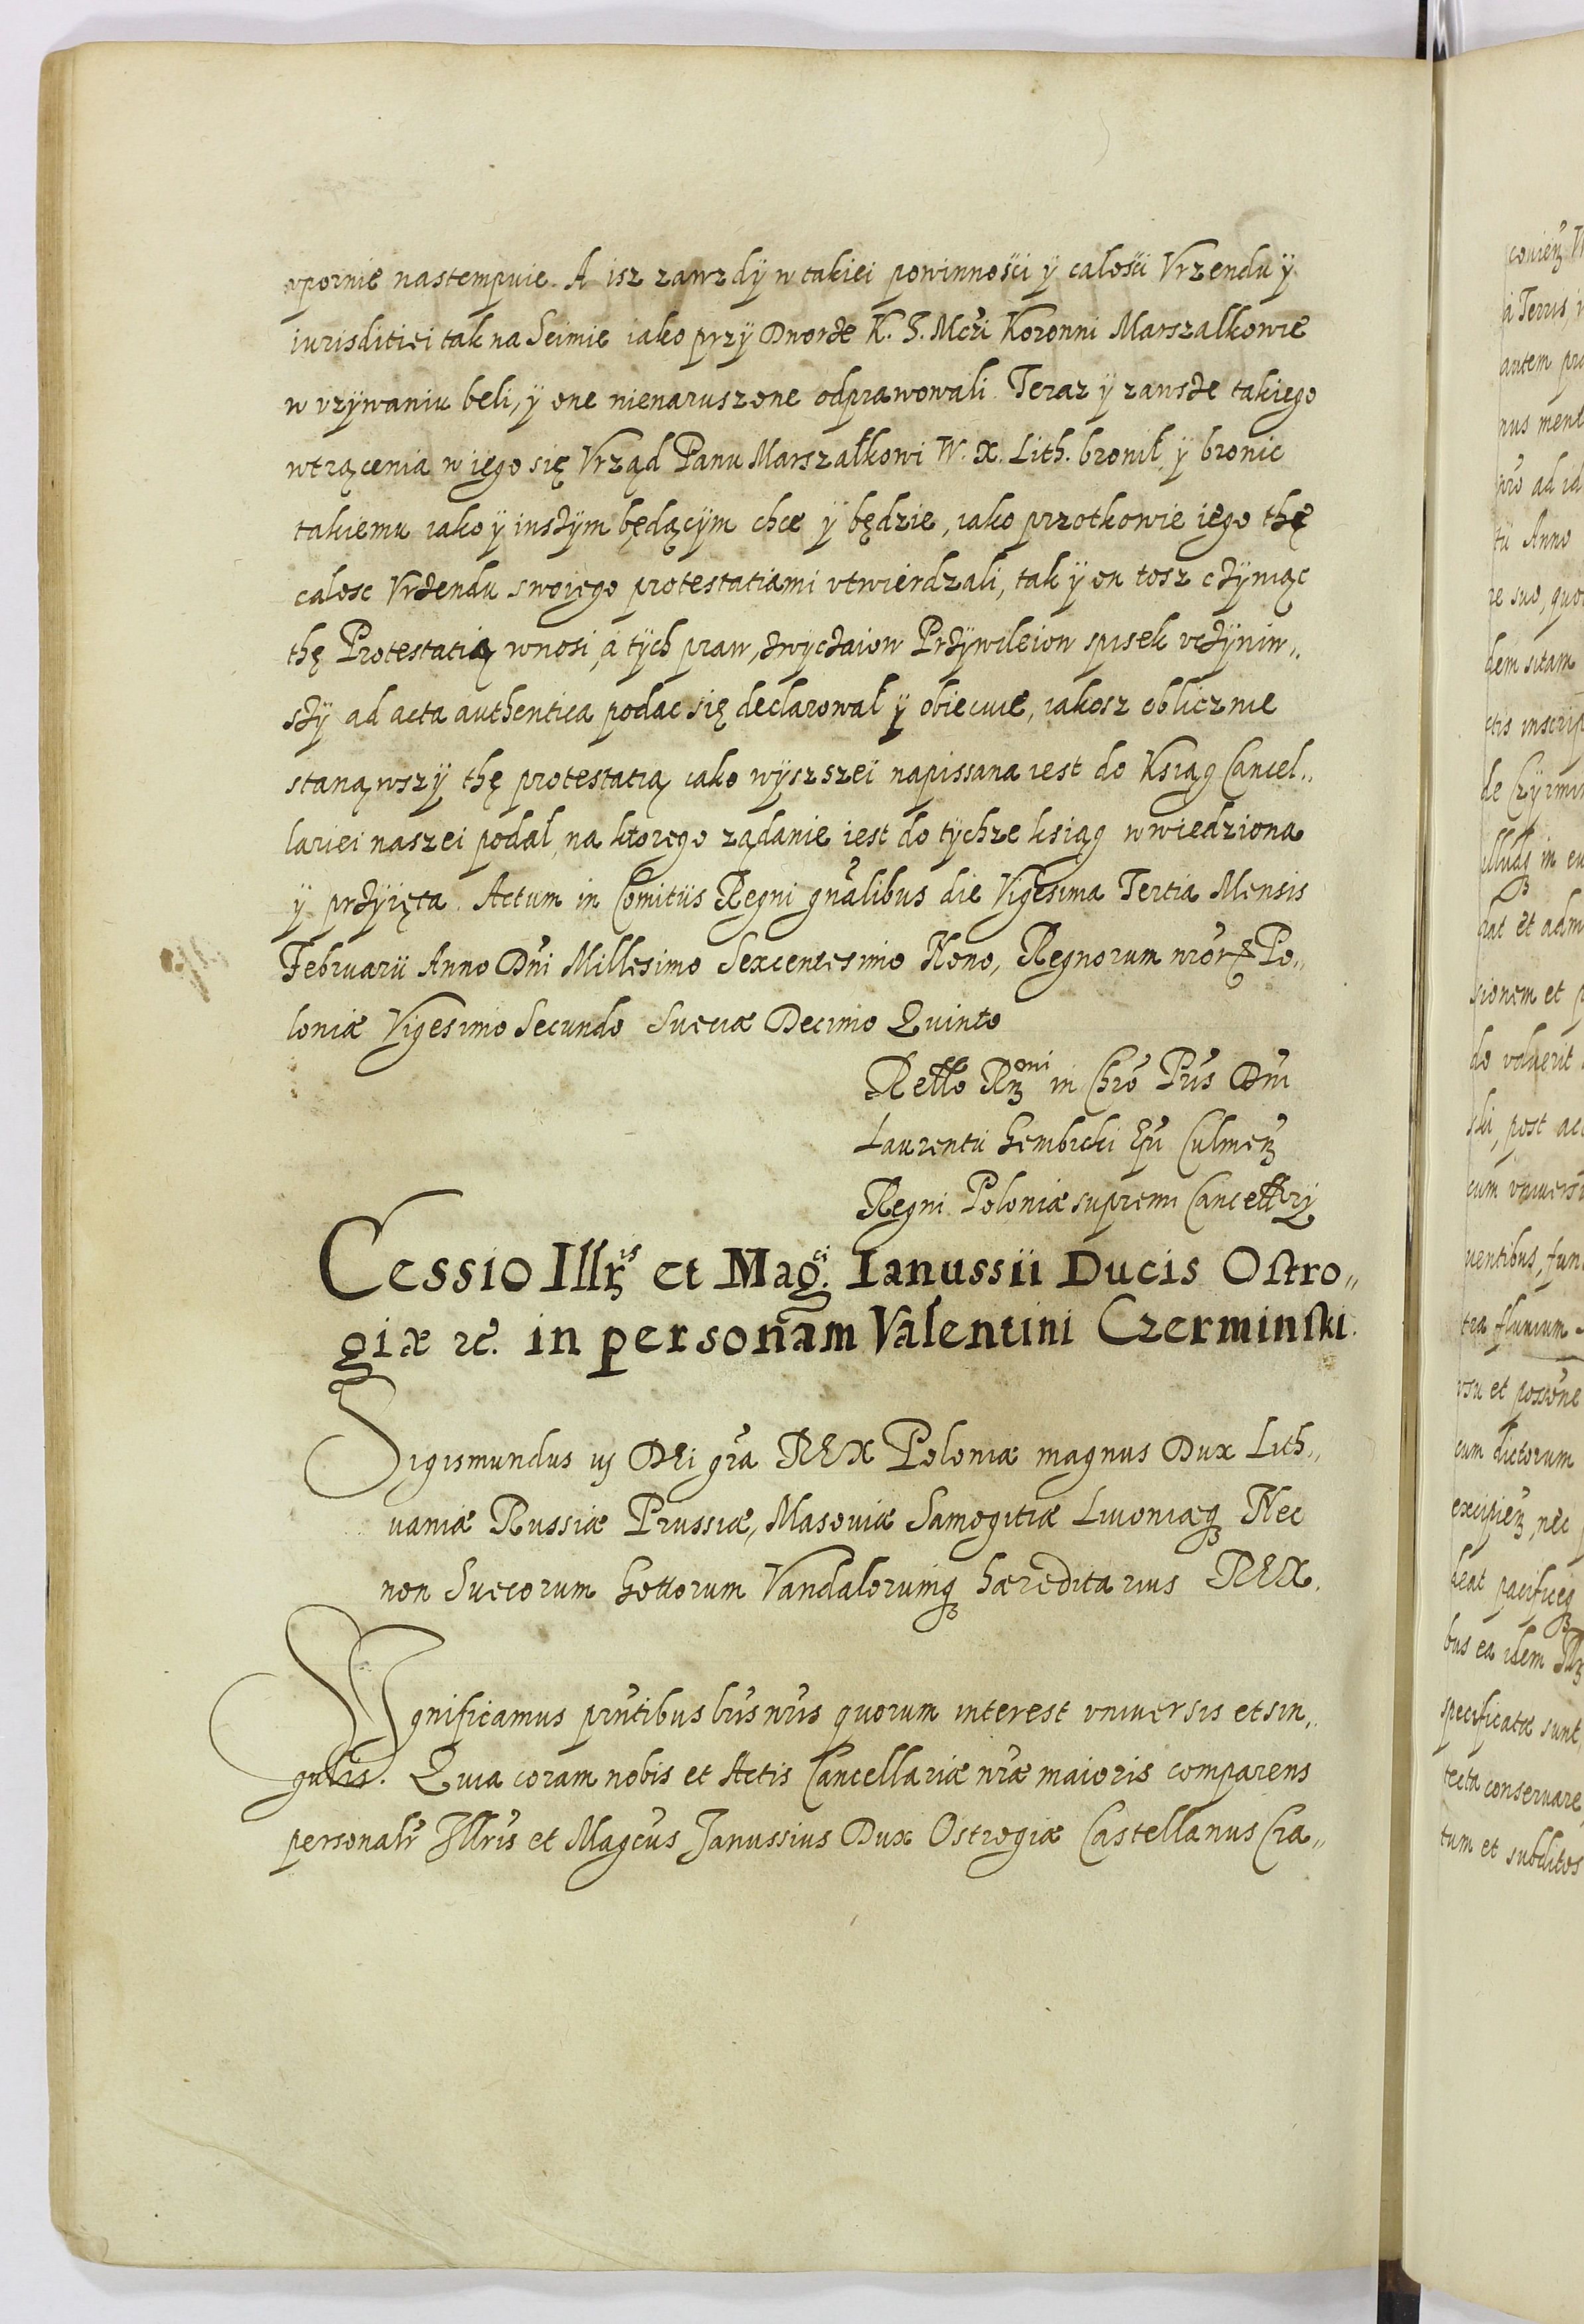 upornie nastempuie. A isz zawzdÿ w takiei powinnosci ÿ calosci Vrzendu ÿ
iurisditiei tak na Seimie iako przÿ Dworze K. J. Mczi Koronni Marszalkowie
w vzÿwaniu beli, ÿ one nienaruszone odprawowali. Teraz ÿ zawsze takiego
wtrącenia w iego się Vrząd Panu Marszałkowi W. X. Lith. bronił, ÿ bronic
takiemu iako ÿ inszÿm będącÿm chce ÿ będzie, iako przotkowie iego thę
calosc Vrzendu swoiego protestatiami vtwierdzali, tak ÿ on tosz czÿniąc
thę Protestatią wnosi, á tÿch praw, zwyczaiow Przÿwileiow spisek vczÿniw„
szÿ ad acta authentica podac się declarowal ÿ obiecuie, iakosz oblicznie
stanąwszÿ thę protestatią iako wÿszszeï napissana iest do Ksiąg Cancel„
lariei naszei podal, na ktorego ządanie iest do tÿchze ksiąg wwiedziona
ÿ przÿięta. Actum in Comitiis Regni gnalibus die Vigesima Tertia Mensis
Februarii Anno Dni Millesimo Sexcentesimo Nono, Regnorum nror Po„
loniæ Vigesimo Secundo Sueciæ Decimo Quinto
Rello Rz oni in Chro Pris Dni
Laurentii Gembicki Epi Culmeз
Regni Poloniæ supremi Cancellrÿ
Cessio Illris et Magci. Ianussii Ducis Ostro„
giæ &c. in personam Valentini Czerminski.
Sigismundus iij DEi gra REX Poloniæ magnus Dux Lith„
uaniæ Russiæ Prussiæ, Masouiæ Samogitiæ Liuoniæqз Nec
non Suecorum Gottorum Vandalorumqз hæreditarius REX.
Significamus pntibus lris nris quorum interest vniuersis et sin„
gulis. Quia coram nobis et Actis Cancellariæ nræ maioris comparens
personalr Illris et Magcus Janussius Dux Ostrogiæ Castellanus Cra„
à Terris,
autem
nus ment
pro ad id
Anno
re suo, quo
dem sitam
ctis inscrip
de Czÿrmin
in eu
rat et adm
sionem et p
do voluerit
ski, post
cum vniuersi
uentibus, fun
flunium
vsu et
cum dictorum
excipieз, nec
beat pacificeqз
bus ea idem
specificatæ sunt,
tecta conseruare,
tum et subditos